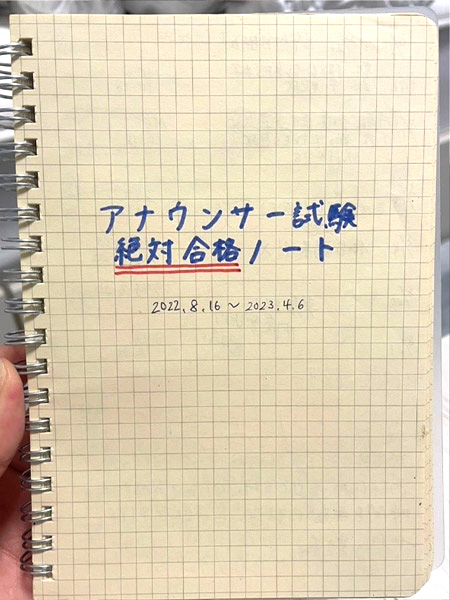 アナウンサー試験
絶対合格ノート
2022.8.16～2023.4.6